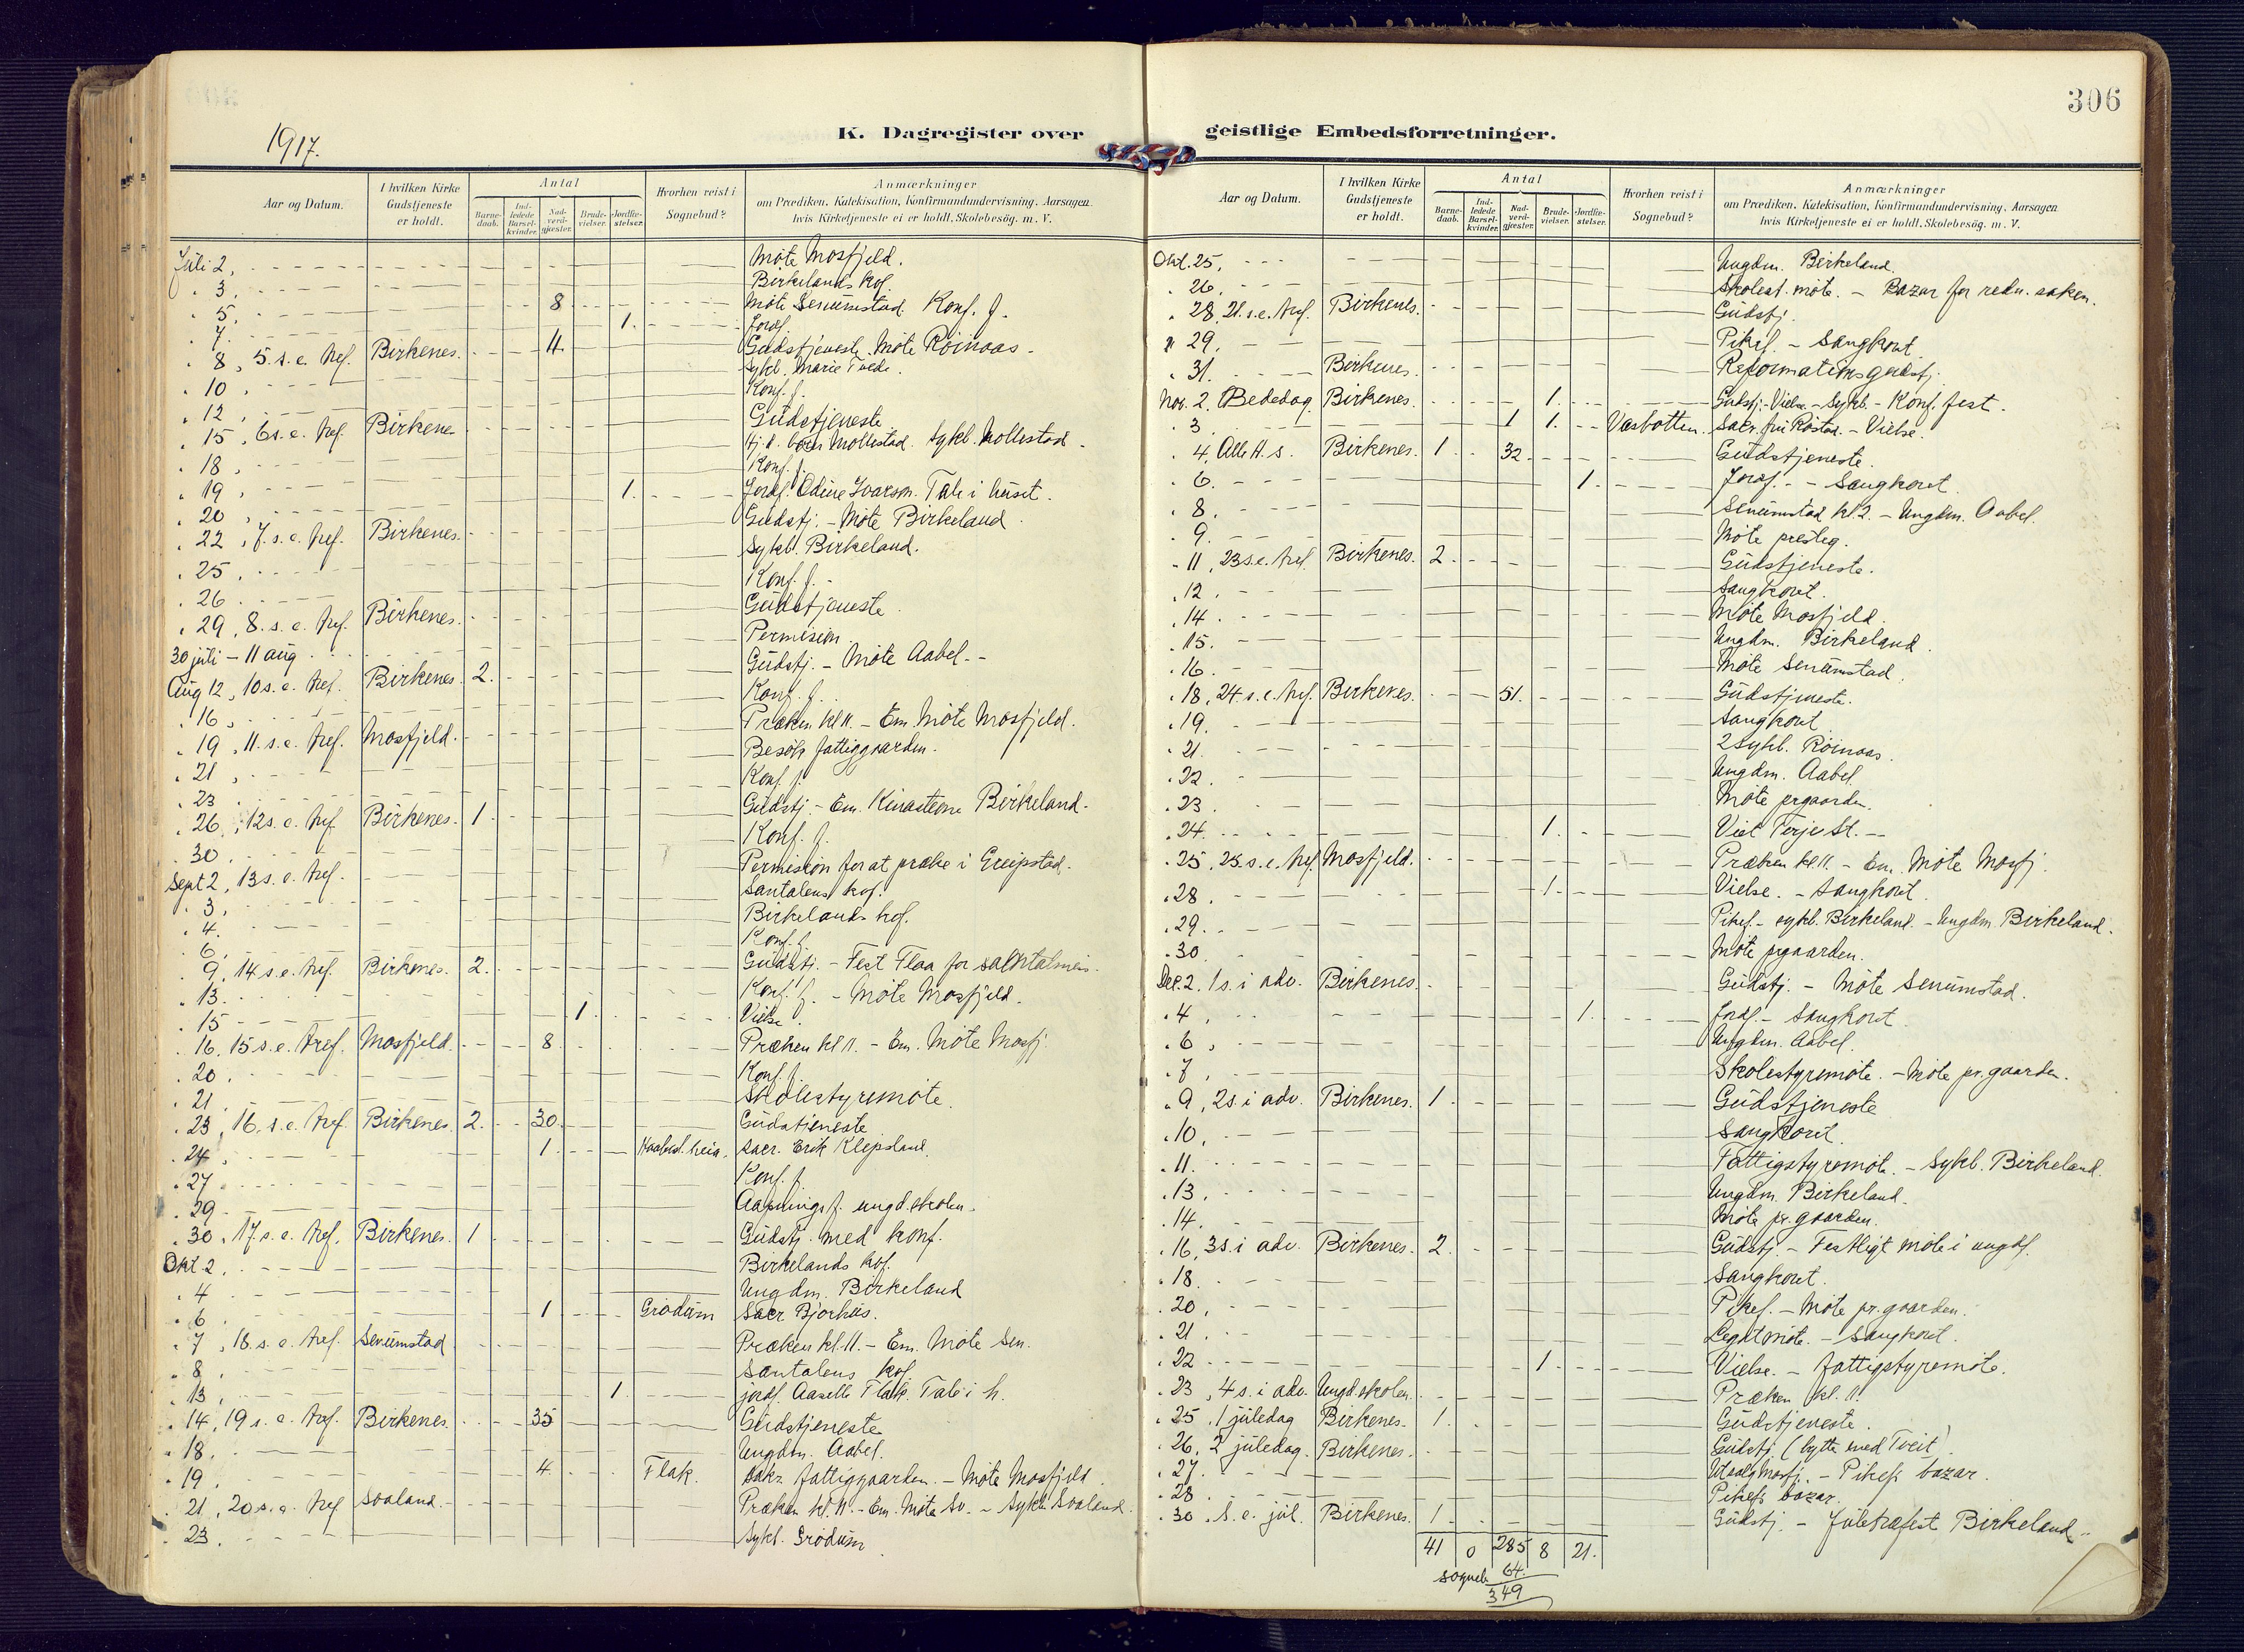 306
1917.
K. Dagregister over geistlige Embedsforretninger.
Aar og Datum.
I hvilken Kirke Gudstjeneste er holdt.
Antal
Barne-daab.
Ind-ledede Barsel-kvinder.
Nad-verd-gjæster.
Brude-vielser.
Jordfæ-stelser.
Hvorhen reist i Sognebud?
Anmærkninger
om Prædiken, Katekisation, Konfirmandundervisning. Aarsagen
hvis Kirketjeneste ei er holdt. Skolebesøg. m. V.
Juli 2, Møte Mosfjeld.
" 3, Birkelands kof.
" 5, 8 Møte Senumstad. Konf. f.
" 7. 1. Jordf.
" 8, 5. s. e. tref. Birkenes. 4 Gudstjeneste. Møte Røinaas.
" 10, Sykb. Marie Tvede.
" 12, Konf. f.
" 15, 6 s. e. tref. Birkenes Gudstjeneste
" 18, Mollestad. Sykb. Mollestad
" 19, Konf. f.
" 20, 1. Jordf. Odine Ivarson. Tale i huset.
" 22, 7. s. e. tref. Birkenes. Gudstj. - Møte Birkeland
" 25, Sykb. Birkeland.
" 26. Konf. f. -
" 29, 8. s. e. tref. Birkenes. Gudstjeneste.
30 juli - 11 aug. Permision.
Aug 12, 10 s. e. tref. Birkenes. 2. Gudstj. - Møte Aabel. -
" 16, Konf. f.
" 19, 11. s. e. tref. Mosfjeld. Præken kl 11. - Em. Møte Mosfjeld.
" 21, Besøk fattiggaarden.
" 23 Konf. f.
" 26, 12 s. e. tref Birkenes. 1. Gudstj. - Em. Birkeland.
" 30. Konf. f.
Sept 2, 13 s. e. tref. Permision for at præke i Greipstad.
" 3, Santalens kof.
" 4. Birkelands kof.
" 6, Konf. f.
" 9, 14 s. e. tref. Birkenes. 2. Gudstj. - Fest Flaa for santalmis.
" 13. Konf. f. - Møte Mosfjeld.
" 15 1. Vielse.
" 16, 15 s. e. tref. Mosfjeld. 8 Præken kl 11. - Em. Møte Mosfj.
" 20. Konf. f.
" 21. Skolestyremøte.
" 23, 16. s. e. tref. Birkenes. 2. 30. Gudstjeneste
" 24, 1. heia. Sacr. Erik Klepsland.
" 27. Konf. f.
" 29. Aapningsf. ungd.skolen.
" 30, 17. s. e. tref. Birkenes. 1. Gudstj. med konf.
Okt 2. Birkelands kof.
" 4 Ungdm. Birkeland
" 6 1 Grødum Sacr Bjorhus.
" 7, 18. s. e. tref. Senumstad Præken kl. 11. - Em. Møte Sen.
" 8. Santalens kof.
" 13, 1. Jordf. Flak. Tale i h.
" 14, 19 s. e. tref. Birkenes. 35 Gudstjeneste
" 18, Ungdm. Aabel.
" 19. 4 Flak. Sakr. fattiggaarden. - Møte Mosfjeld
" 21, 20 s. e. tref Svaland. Præken kl. 11. - Em. Møte Sv. - Sykb. Svaland.
" 23. Sykb. Grødum
Aar og Datum.
I hvilken Kirke Gudstjeneste er holdt.
Antal
Barne-daab.
Ind-ledede Barsel-kvinder.
Nad-verd-gjæster.
Brude-vielser.
Jordfæ-stelser.
Hvorhen reist i Sognebud?
Anmærkninger
om Prædiken, Katekisation, Konfirmandundervisning. Aarsagen
hvis Kirketjeneste ei er holdt. Skolebesøg. m. V.
Okt. 25, Ungdm. Birkeland.
" 26, Skolest. møte. - Bazar for redn. saken.
" 28, 21. s. e. tref. Birkenes. Gudstj.
" 29, Pikef. - Sangkoret.
" 31. Birkenes. Reformationsgudstj.
Nov. 2. Bededag. Birkenes. 1. Gudstj. - Vielse - Sykb. - Konf. fest.
" 3. 1 1. Væsbotten. Sacr. fru Røstad. - Vielse.
" 4. Alle H. s. Birkenes. 1. 32. Gudstjeneste.
" 6. 1. Jordf. - Sangkoret.
" 8. Senumstad kl. 2. - Ungdm. Aabel.
" 9. Møte presteg.
" 11, 23 s. e. tref. Birkenes. 2. Gudstjeneste.
" 12. Sangkoret.
" 14. Møte Mosfjeld.
" 15. Ungdm. Birkeland.
" 16. Møte Senumstad.
" 18, 24. s. e. tref. Birkenes. 51. Gudstjeneste.
" 19. Sangkoret.
" 21. 2 sykb. Røinaas.
" 22. Ungdm. Aabel
" 23. Møte prgaarden.
" 24. 1. Viet Terje St. -
" 25, 25. s. e. tref. Mosfjeld. Præken kl. 11. - Em. Møte Mosfj.
" 28. 1. Vielse. - Sangkoret.
" 29. Pikef. - sykb. Birkeland. - Ungdm Birkeland.
" 30. Møte prgaarden.
Dec. 2. 1 s. i adv. Birkenes. Gudstj. - Møte Senumstad.
" 4, 1. Jordf. - Sangkoret.
" 6, Ungdm. Aabel.
" 7, Skolestyremøte. - Møte pr.gaarden.
" 9, 2 s. i adv. Birkenes. 1. Gudstjeneste
" 10, Sangkoret.
" 11. Fattigstyremøte. - Sykb. Birkeland.
" 13, Ungdm. Birkeland.
" 14. Møte pr.gaarden.
" 16, 3 s. i adv. Birkenes. 2. Gudstj. - Festligt møte i ungdf.
" 18. Sangkoret.
" 20, Pikef. - Møte pr.gaarden.
" 21. Legatmøte. - Sangkoret.
" 22. 1. Vielse. - Fattigstyremøte.
" 23, 4 s. i adv. Ungd.skolen. Præken kl. 11.
" 25. 1 juledag Birkenes. 1. Gudstjeneste.
" 26, 2 juledag. Birkenes. Gudstj. (bytte med Tveit).
" 27. Utsalg Mosfj. - Pikef. bazar.
" 28. Pikefs bazar.
" 30, s. e. jul. Birkenes. 1. Gudstj. - Juletræfest Birkeland.
41 0 285 8 21.
sogneb. 64.
349